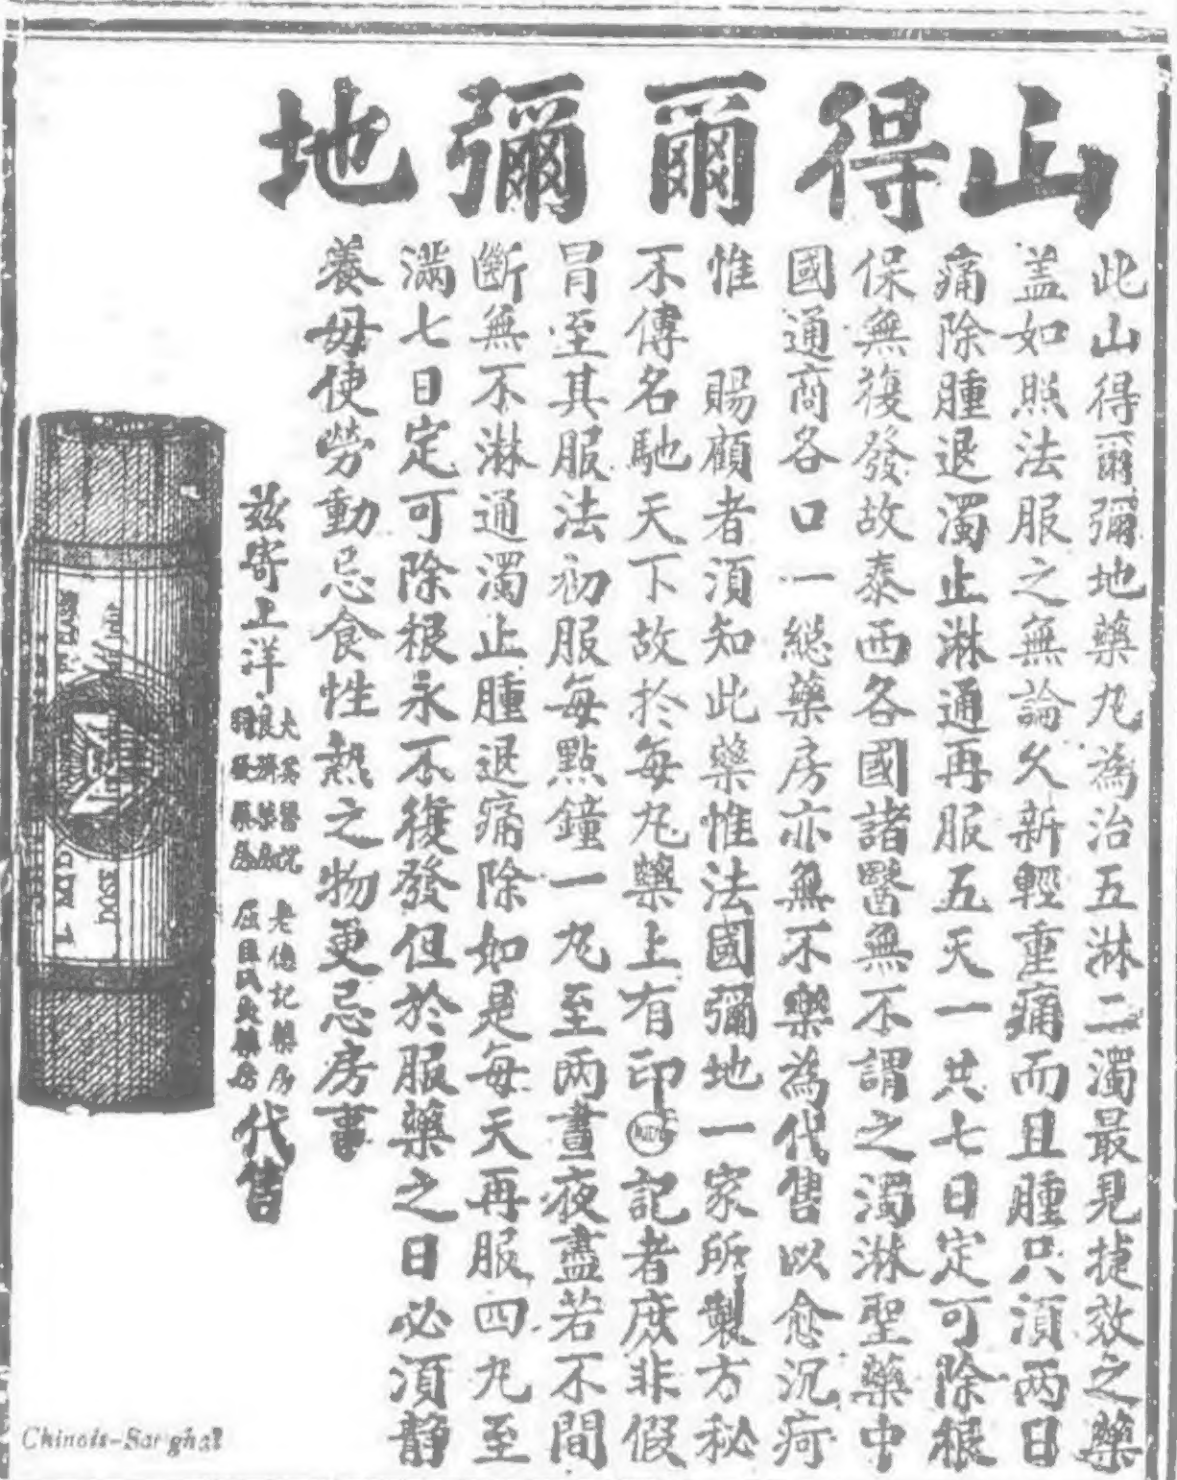 山得爾彌地
此山得爾彌地藥丸為治五淋二濁最見捷效之藥
盖如照法服之無論久新輕重痛而且腫只須兩日
痛除腫退濁止淋通再服五天一共七日定可除根
保無復發故泰西各國諸醫無不謂之濁淋聖藥中
國通商各口一總藥房亦無不樂為代售以愈沉疴
惟　賜顧者須知此藥惟法國彌地一家所製方秘
不傳名馳天下故於每丸藥上有印MIDY記者庶非假
冒至其服法初服每點鐘一丸至兩晝夜盡若不間
斷無不淋通濁止腫退痛除如是每天再服四丸至
滿七日定可除根永不復發但於服藥之日必須靜
養毋使勞動忌食性熱之物更忌房事
茲寄上洋
大英醫院
良濟藥房
老德記藥房
屈臣氏大藥房
代售
DOSE
Chinois-Sanghaï